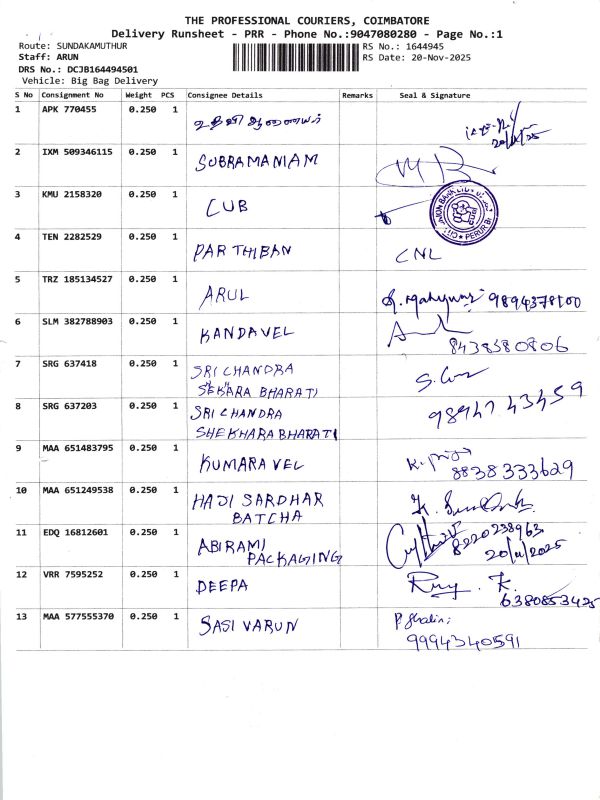 THE PROFESSIONAL COURIERS, COIMBATORE
Delivery Runsheet - PRR - Phone No.:9047080280 - Page No.:1
Route: SUNDAKAMUTHUR RS No.: 1644945
Staff: ARUN RS Date: 20-Nov-2025
DRS No.: DCJB164494501
Vehicle: Big Bag Delivery
S No Consignment No Weight PCS Consignee Details Remarks Seal & Signature
1 APK 770455 0.250 1 உதவி ஆணையர்
20/11/25
2 IXM 509346115 0.250 1 SUBRAMANIAM
3 KMU 2158320 0.250 1 CUB
4 TEN 2282529 0.250 1 PARTHIBAN CNL
5 TRZ 185134527 0.250 1 ARUL 9894378100
6 SLM 382788903 0.250 1 KANDAVEL
8438380806
7 SRG 637418 0.250 1 SRI CHANDRA
SEKARA BHARATI
8 SRG 637203 0.250 1 SRI CHANDRA 9894743459
SHEKHARA BHARATI
9 MAA 651483795 0.250 1 KUMARAVEL
8838333629
10 MAA 651249538 0.250 1 HAJI SARDHAR
BATCHA
11 EDQ 16812601 0.250 1 ABIRAMI 8220238963
PACKAGING 20/11/2025
12 VRR 7595252 0.250 1 DEEPA
6380853425
13 MAA 577555370 0.250 1 SASI VARUN
9994340591